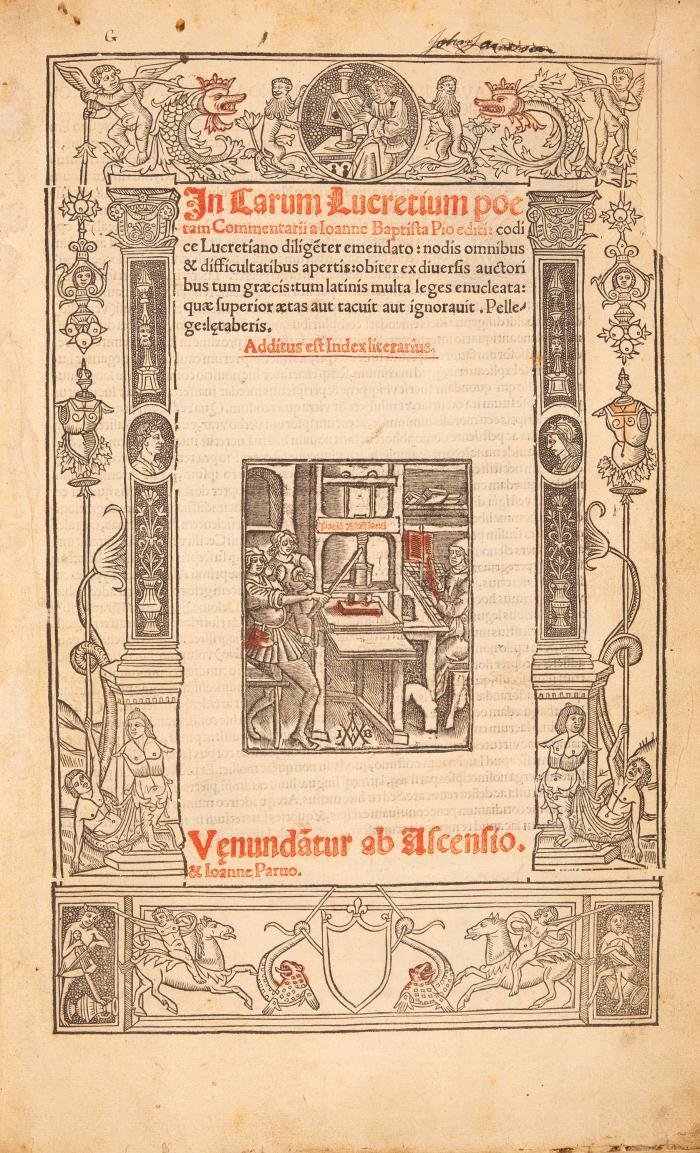 G
In Carum Lucretium poe
tam Commentarii a Ioanne Baptista Pio editi: codi
ce Lucretiano diligẽter emendato: nodis omnibus
& difficultatibus apertis: obiter ex diuersis auctori
bus tum græcis: tum latinis multa leges enucleata:
quæ superior ætas aut tacuit aut ignorauit. Pelle-
ge: lętaberis.
Additus est Index literarius.
I B
Vęnundãtur ab Ascensio.
& Ioanne Paruo.